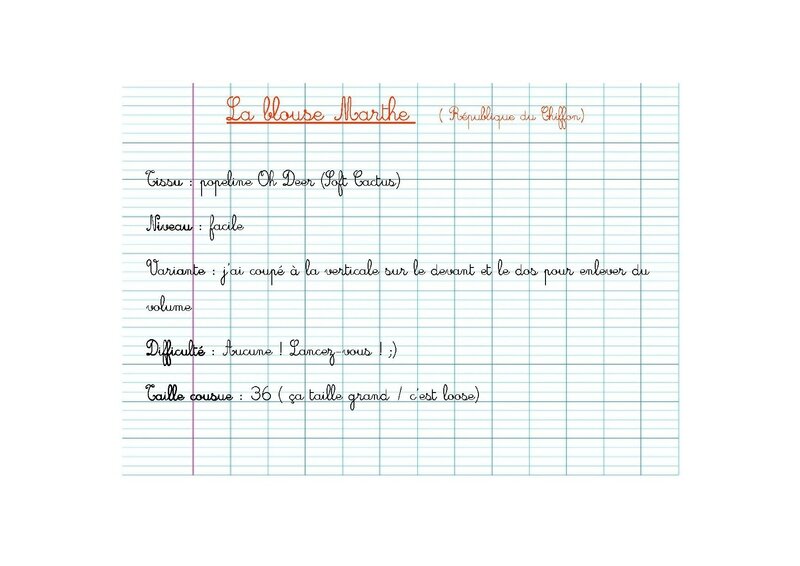 La blouse Marthe ( République du Chiffon)
Tissu : popeline Oh Deer (Soft Cactus)
Niveau : facile
Variante : j'ai coupé à la verticale sur le devant et le dos pour enlever du
volume
Difficulté : Aucune ! Lancez-vous ! ;)
Taille cousue : 36 ( ça taille grand / c'est loose)